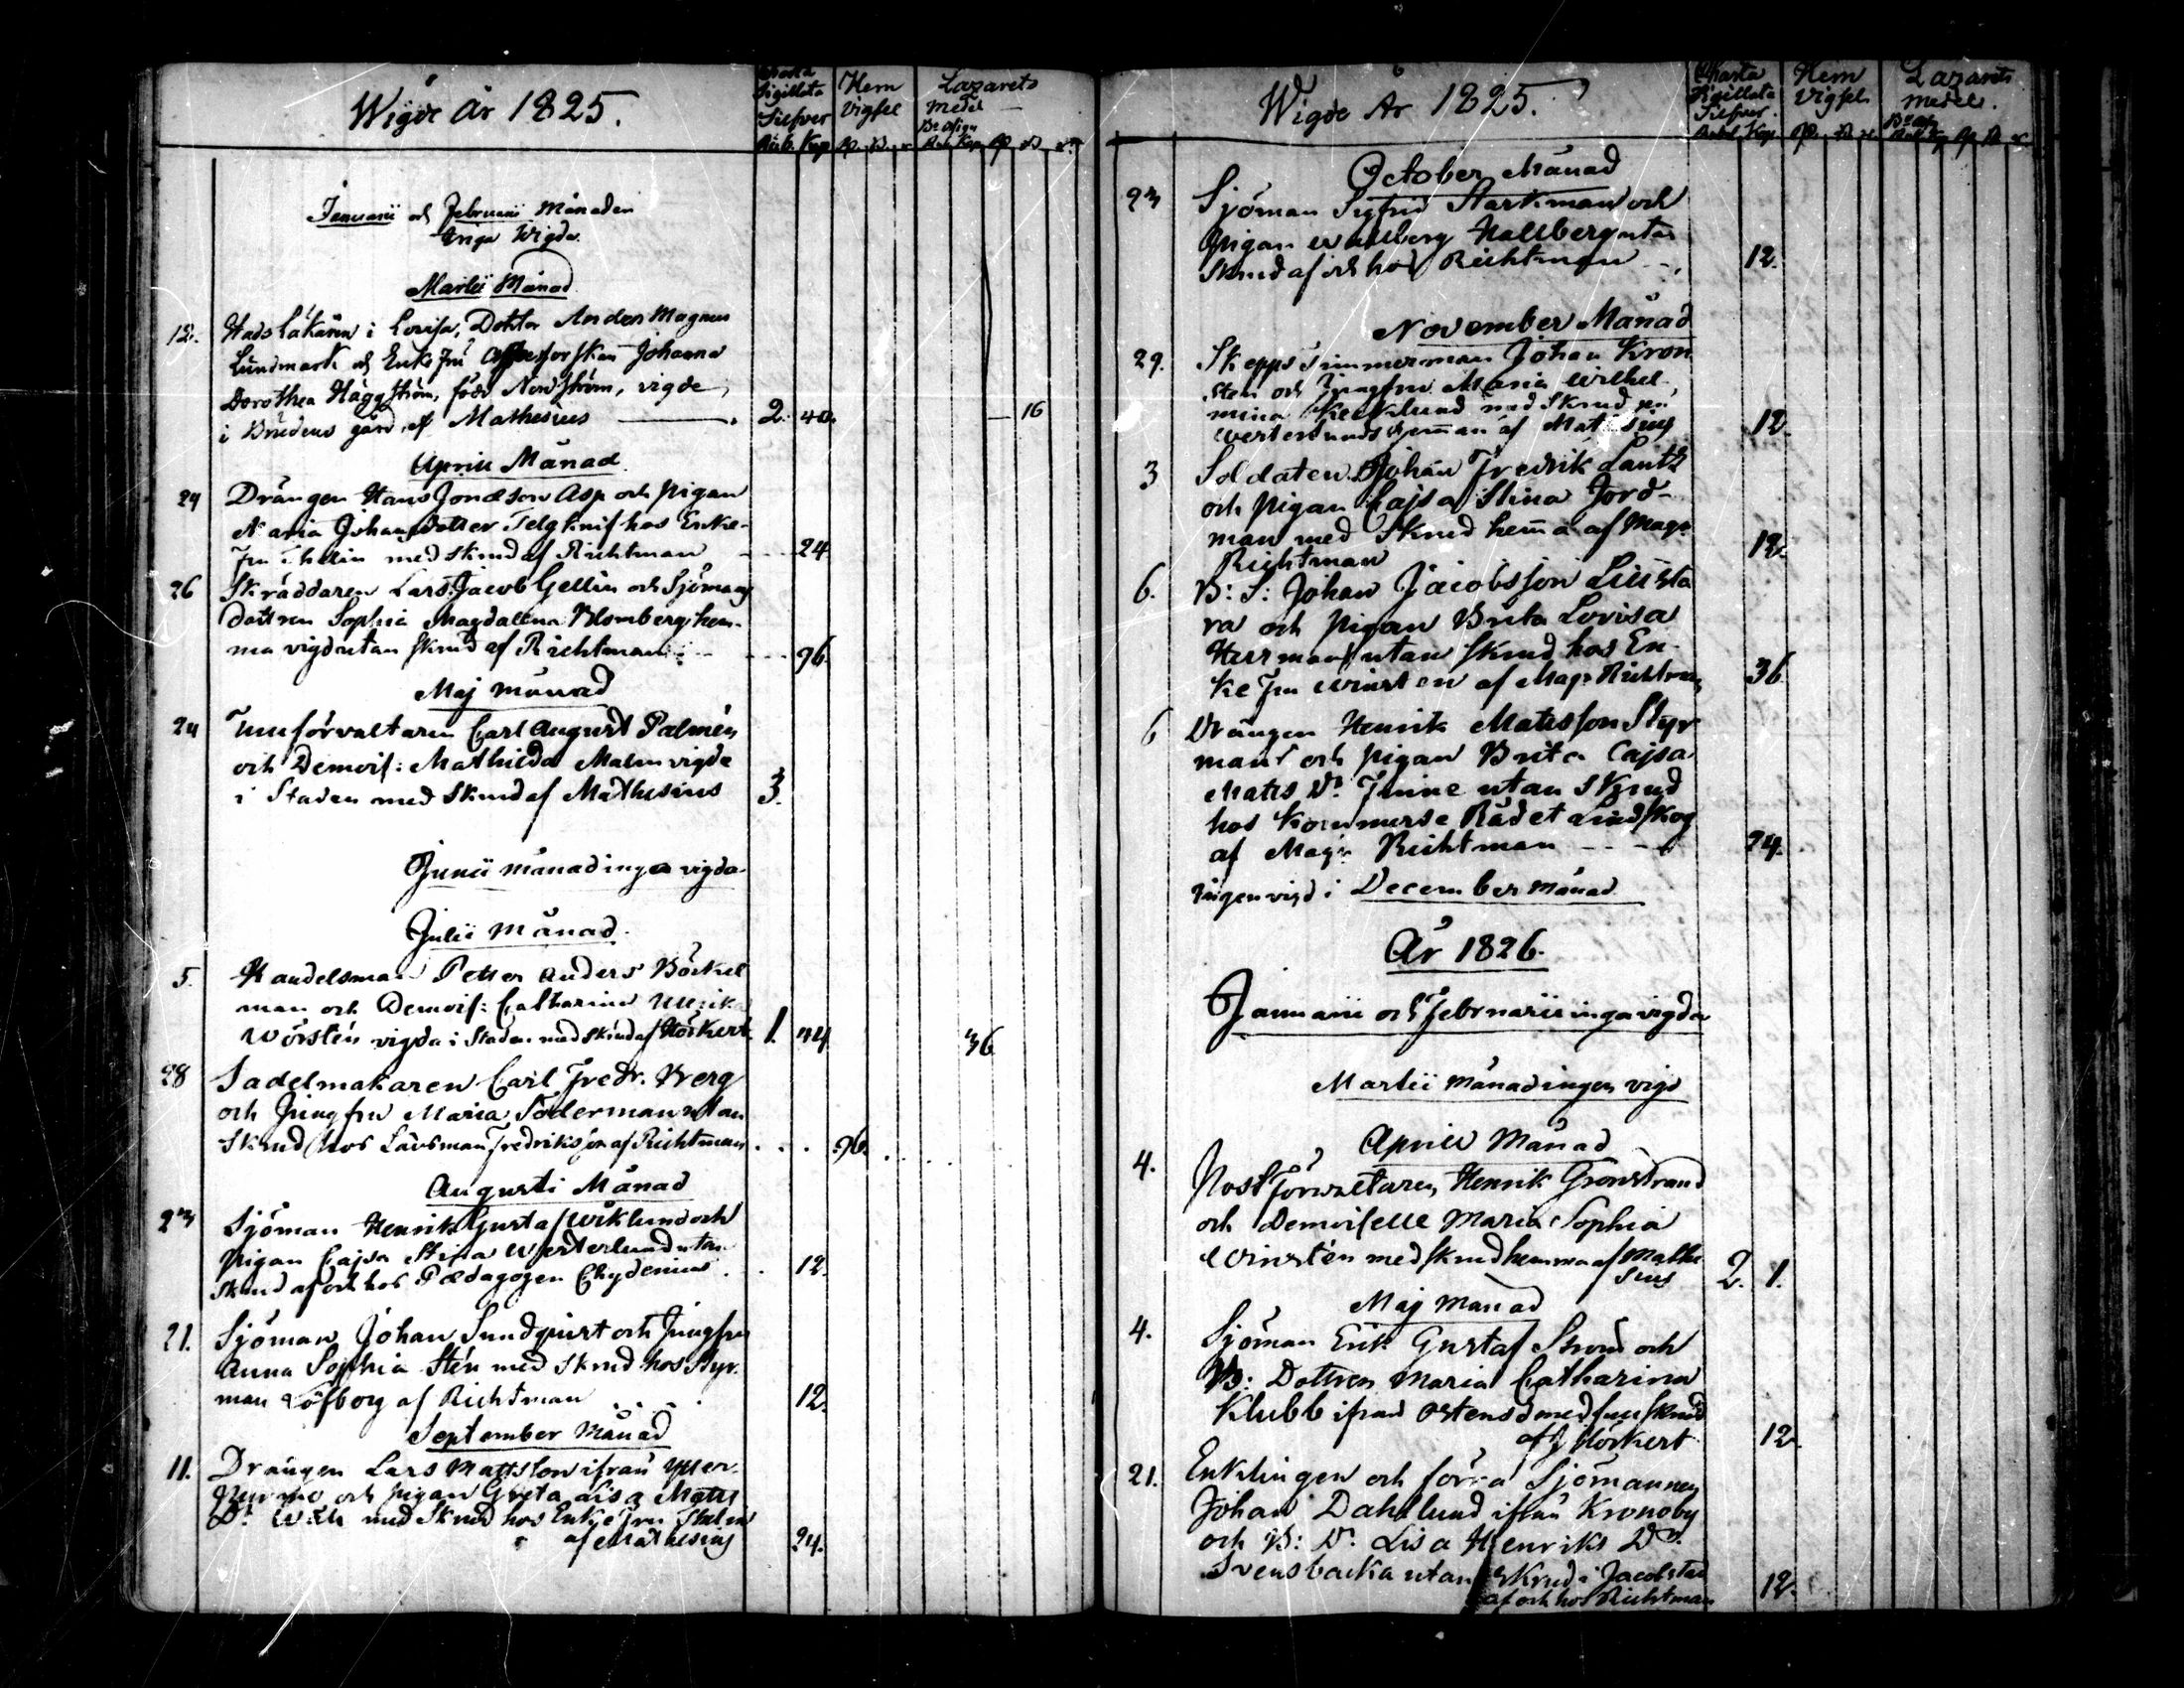 Wigde år 1825.
Charta Sigillata Silfver Rub. Kop
Hem Vigsel
Lazarets Medel
Januarii och Februarii Månader
Inga Wigde.
Martii Månad
12. Stads Läkaren i Lovisa, Doktor Anders Magnus
Lundmark och Enke Fru Johanna
Dorothea Häggström, född Nordström, vigde
i Brudens gård, af Mathesius 2. 40. 16
Aprill Månad
24 Drängen Hans Jonasson Asp och pigan
Maria Johansdotter Telgknif hos Enke-
Fru Thelin med skrud af Richtman 24
26 Skräddaren Lars Jacob Gellin och Sjömans
dottren Sophia Magdalena Blomberg hem-
ma vigd utan skrud af Richtman 96.
Maj månad
24 Tullförvaltaren Carl August Palmén
och Demois: Mathilda Malm vigde
i Staden med skrud af Mathesius 3.
Junii månad inga vigda
Julii Månad.
5. Handelsman Petter Anders Böckel
man och Demois: Catharina Ulrika
Wörstén vigda i Staden med skrud af Hörkert 1. 44 36
28 Sadelmakaren Carl Fredr. Berg
och Jungfru Maria Söderman utan
skrud hos Länsman Fredriksson af Richtman 96.
Augusti Månad
23 Sjöman Henrik Gustaf Wiklund och
pigan Cajsa Stina Westerlund utan
skrud af och hos Pædagogen Chydenius 12.
21. Sjöman Johan Sundqvist och Jungfru
Anna Sophia Stén med skrud hos Styr-
man Löfborg af Richtman 12.
September Månad
11. Drängen Lars Mattsson ifrån Ytter-
jeppo och pigan Greta Lisa Matts
Dr. med Skrud hos Enke Fru Thelin
af Mathesius 24.
Wigde År 1825.
Charta Sigillata Silfver. Rubel Kop
Hem Vigsel
Lazarets medel.
October Månad
23 Sjöman Sigfrid Starkman och
Pigan Hallberg utan
skrud af och hos Richtman 12.
November Månad
29. Skepps Timmerman Johan Kron
sten och Jungfru Maria Wilhel-
mina Keckland med Skrud på
Westerlunds af Mathesius 12
3 Soldaten Johan Fredrik Lantz
och pigan Cajsa Stina Jord-
man med Skrud hemma af Mag.
Richtman 12.
6. B: S: Johan Jacobsson Liusta
ra och pigan Brita Lovisa
Herrmans utan skrud hos En-
ke Fru Winstén af Mag. Richtman 36
6 Drängen Henrik Matsson Styr
mans och pigan Brita Cajsa
Mats Dr. Jinine utan Skrud
hos Kommerse Rådet Lindskog
af Mag. Richtman 24.
Ingen vigd i December månad
År 1826.
Januarii och Februarii inga vigda
Martii månad ingen vigd
Aprill Månad
4. Postförvaltaren Henrik Grönstrand
och Demoiselle Maria Sophia
Winstén med skrud hemma af Mathe
sius 2. 1.
Maj Månad
4. Sjöman Erik Gustaf Strand och
B: Dottren Maria Catharina
Klubb ifrån Ostensö med full skrud
af Hörkert 12.
21. Enklingen och förra Sjömannen
Johan Dahllund ifrån Kronoby
och B: D. Lisa Henriks Dr.
Svensbacka utan skrud i Jacobstad
af och hos Richtman 12.